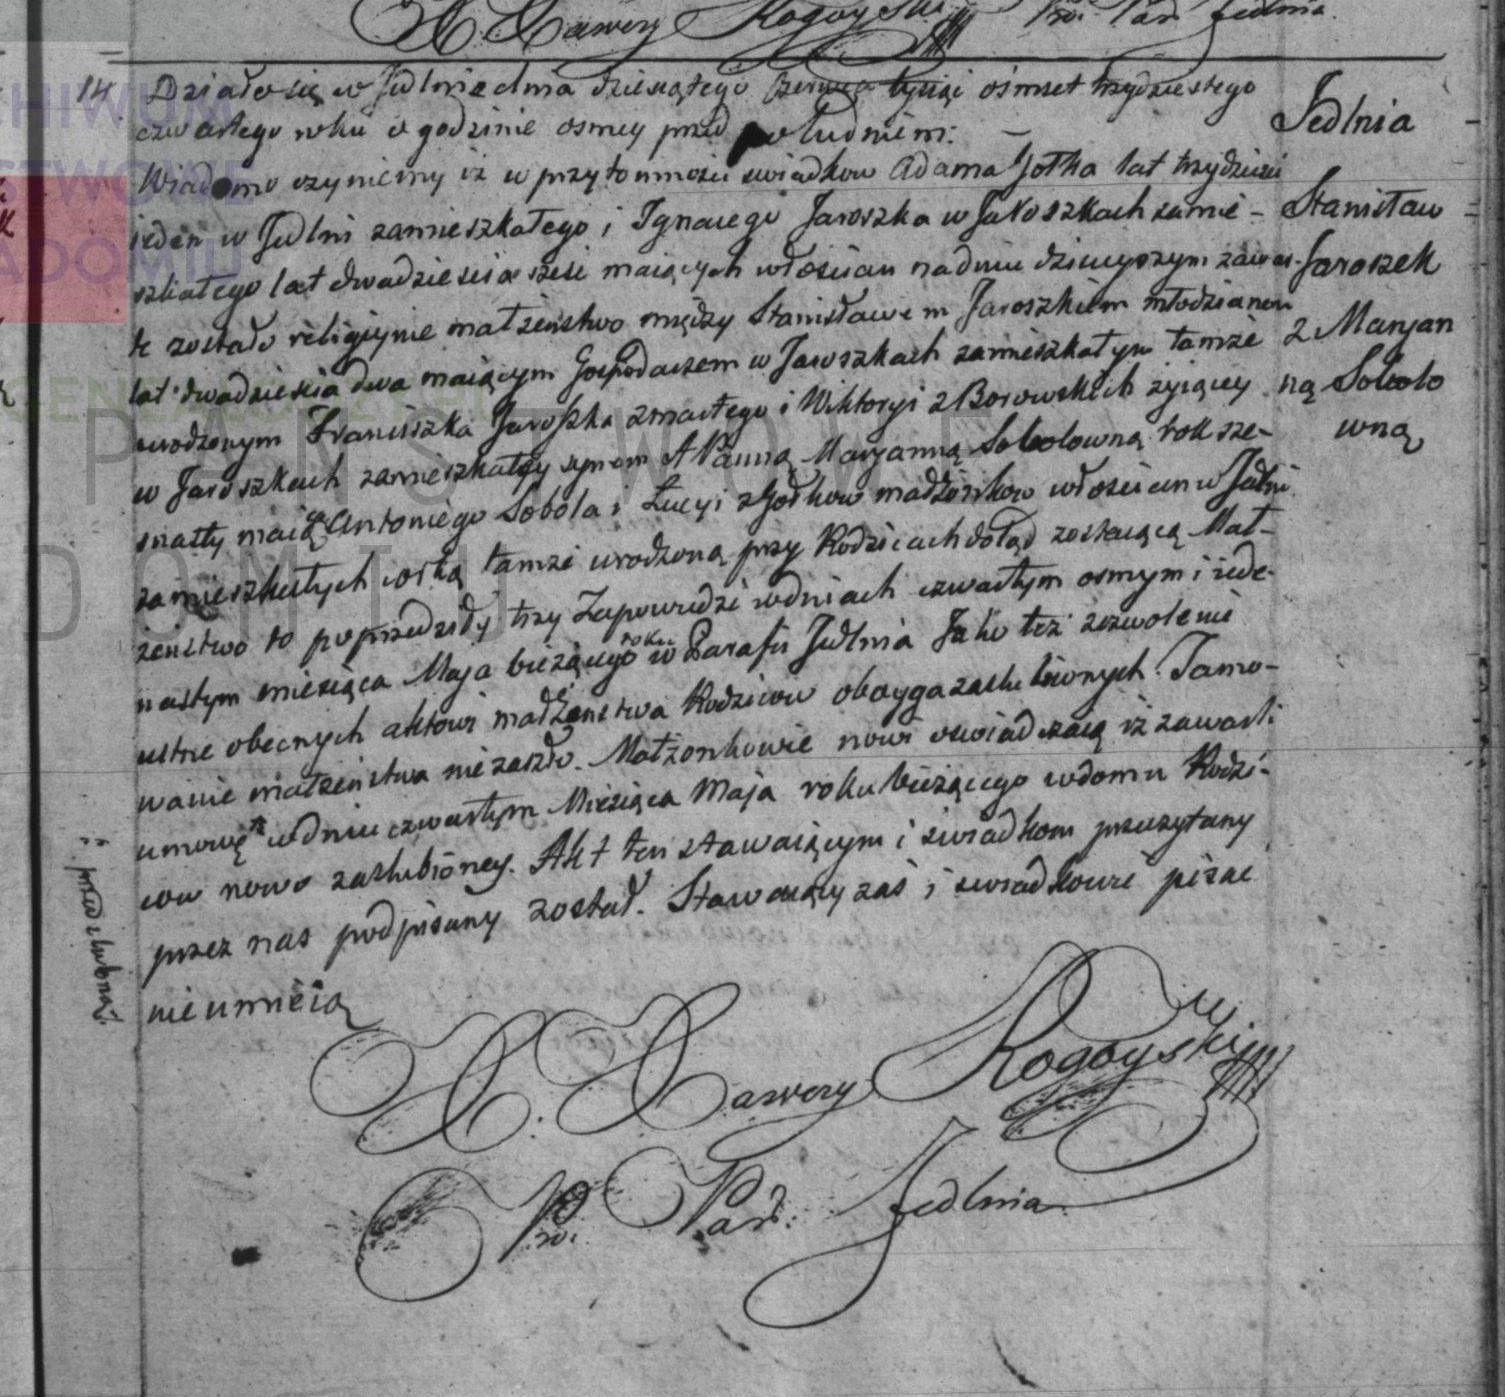 X Xawery Rogoyski Pro. Par Jedlnia.
14. Działo się w Jedlnie dnia dziesiątego Czerwca tysiąc osmset trzydziestego
czwartego roku o godzinie osmey przed południem.
Wiadomo czyniemy iż w przytomności swiadkow Adama Gołka lat trzydzieści
jeden w Jedlni zamieszkałego i Ignacego Jaroszka w Jaroszkach zamie-
szkałego lat dwadzieścia sześć maiących włościan na dniu dzisieyszym zawar-
te zostało religiynie małżeństwo między Stanisławem Jaroszkiem młodzianem
lat dwadzieścia dwa maiącym Gospodarzem w Jaroszkach zamieszkałym tamże
urodzonym Franciszka Jaroszka zmarłego i Wiktoryi z Borowskich żyiącey
w Jaroszkach zamieszkałey synem A Panną Maryanną Sobolowną rok sze-
snasty maiącą Antoniego Sobola i Łucyi z Gołkow madżonkow włościan w Jedlni
zamieszkałych corką tamże urodzoną przy Rodzicach dotąd zostaiącą Mał-
żeństwo to poprzedziły trzy Zapowiedzi w dniach czwartym osmym i iede-
nastym miesiąca Maja bieżącego roku w Parafii Jedlnia Jako też zezwolenie
ustne obecnych aktowi madżeństwa Rodzicow oboyga zaslubionych. Tamo-
wanie małżeństwa nie zaszło. Małżonkowie nowi oswiadczaią iż zawarli
umowę w dniu czwartym Miesiąca Maja roku bieżącego w domu Rodzi-
cow nowo zaslubioney. Akt ten stawaiącym i swiadkom przeczytany
przez nas podpisany został. Stawaiący zaś i swiadkowie pisać
nie umieią
X. Xawery Rogoyski
Pro. Par. Jedlnia
Jedlnia
Stanisław
Jaroszek
z Maryan
ną Sobolo
wną
przedslubną
ARCHIWUM
PAŃSTWOWE